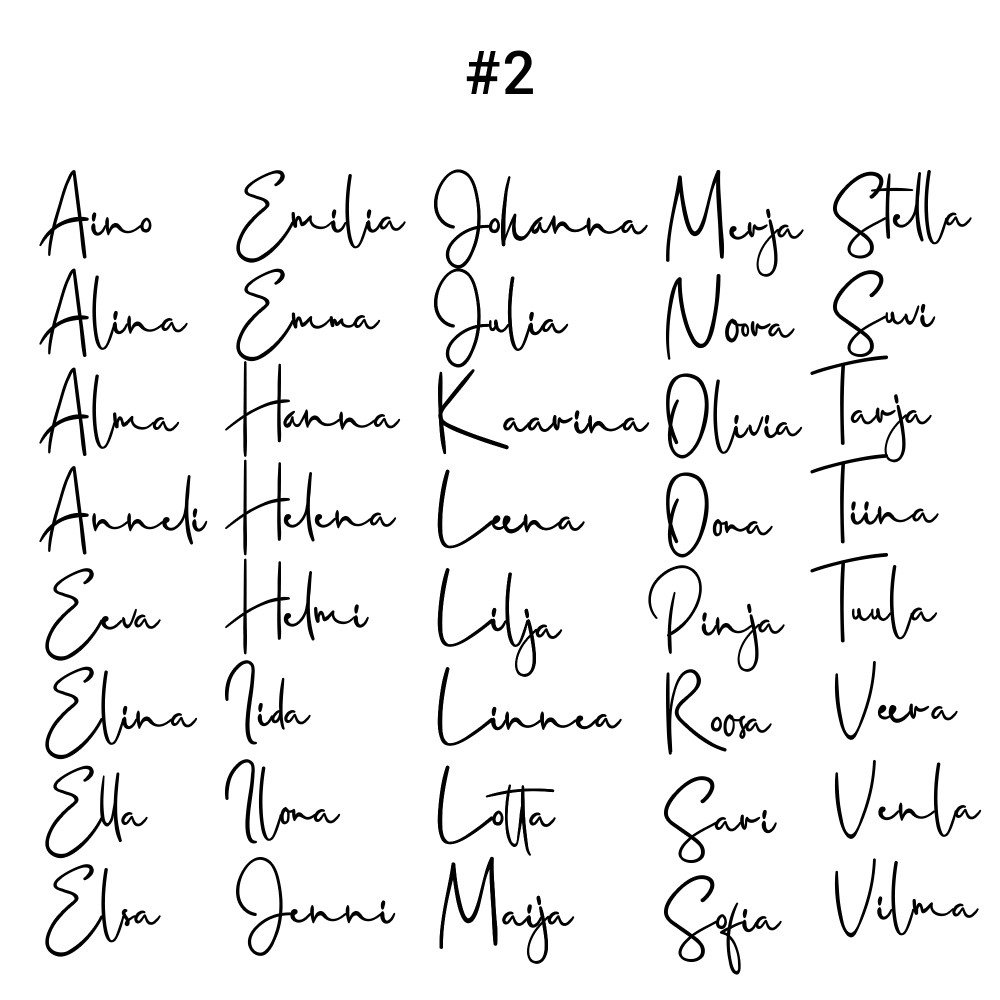 #2
Aino Emilia Johanna Merja Stella
Alina Emma Julia Noora Suvi
Alma Hanna Kaarina Olivia Tarja
Anneli Helena Leena Oona Tiina
Eeva Helmi Lilja Pinja Tuula
Elina Iida Linnea Roosa Veera
Ella Ilona Lotta Sari Venla
Elsa Jenni Maija Sofia Vilma